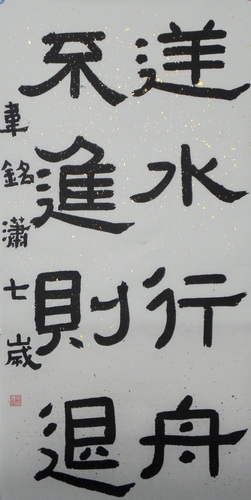 逆水行舟
不進則退
韋銘瀟七歲